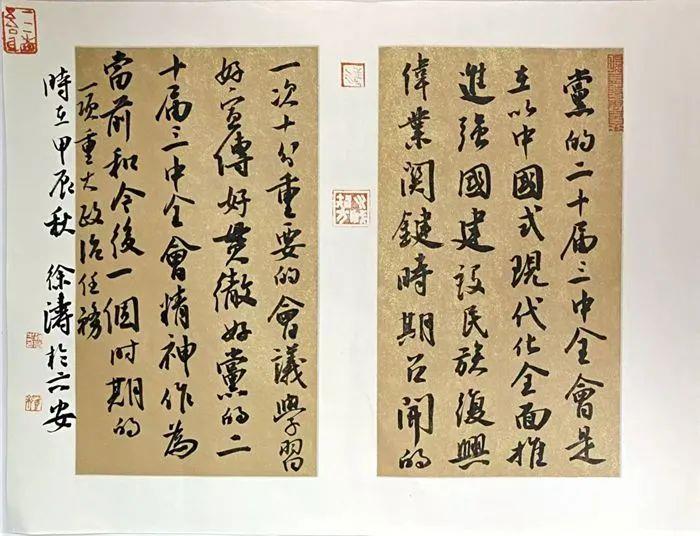 黨的二十届三中全會是
在以中國式現代化全面推
進强國建設民族復興
偉業関鍵時期召開的
一次十分重要的會議學習
好宣傳好貫徹好黨的二
十届三中全會精神作為
當前和今後一個时期的
一项重大政治任務
時在甲辰秋 徐濤於六安